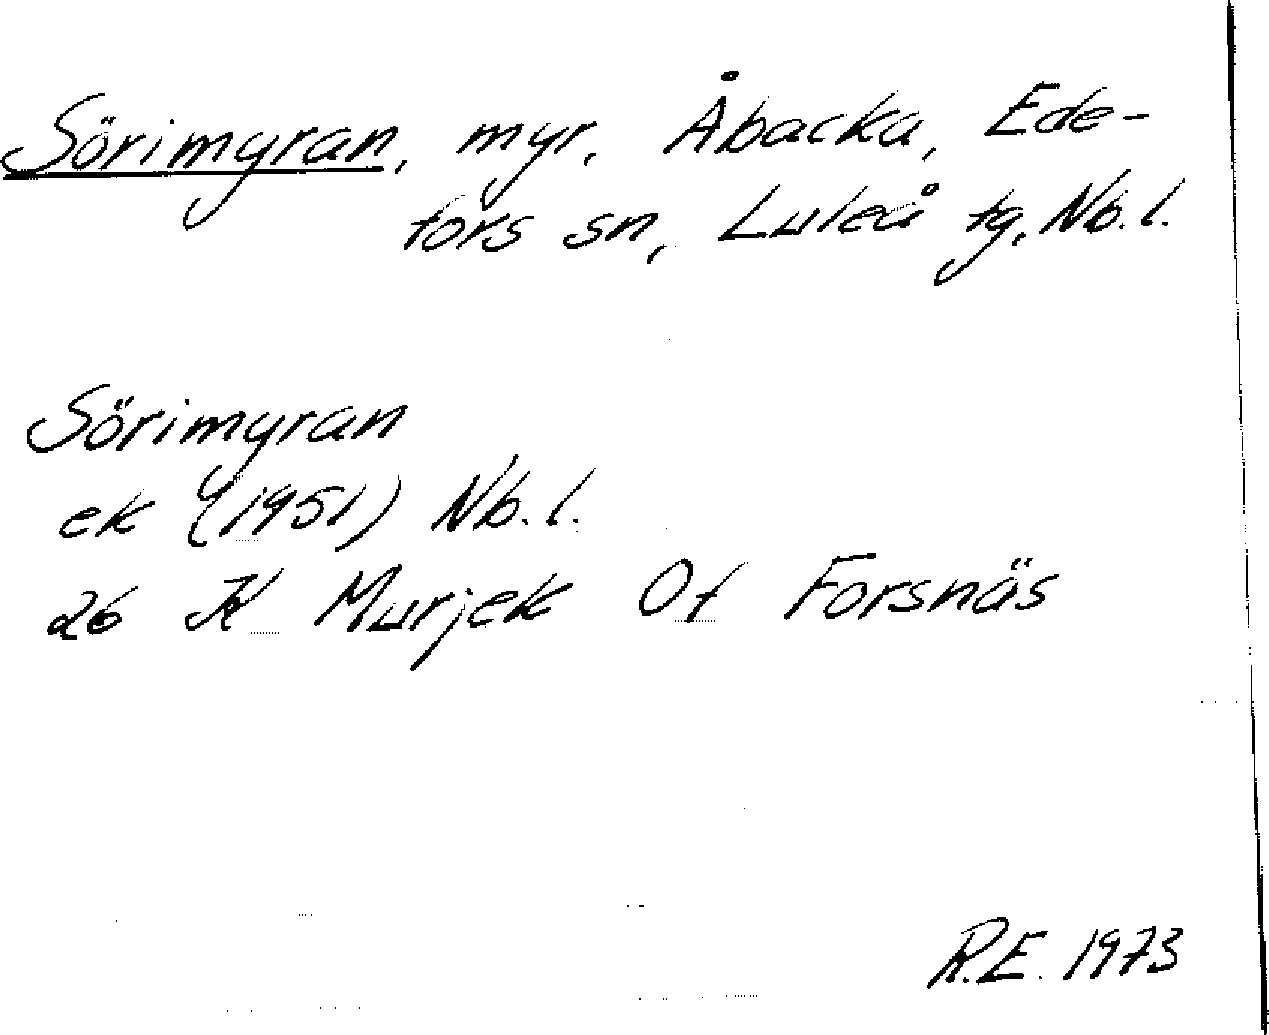 Sörimyran, myr, Åbacka, Ede-
fors sn, Luleå tg, Nb.l.
Sörimyran
ek (1951) Nb.l.
26 K Murjek Of Forsnäs
R.E. 1973